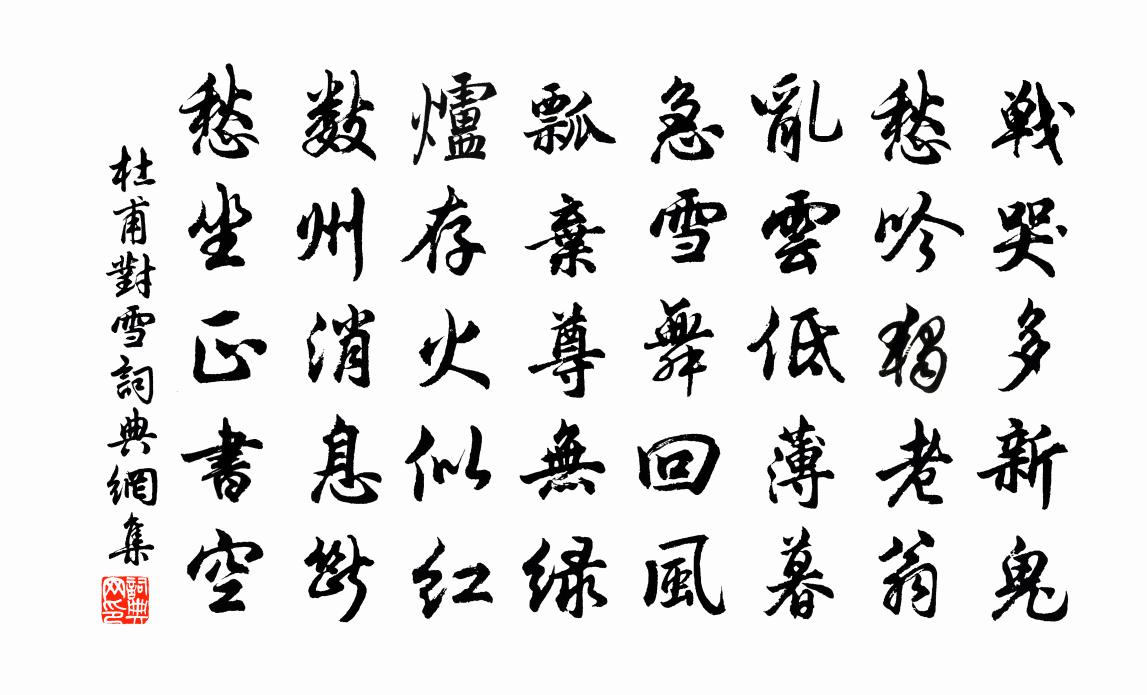 戦哭多新鬼
愁吟獨老翁
亂雲低薄暮
急雪舞回風
瓢棄尊無綠
爐存火似紅
數州消息斷
愁坐正書空
杜甫對雪詞典網集
詞典网印